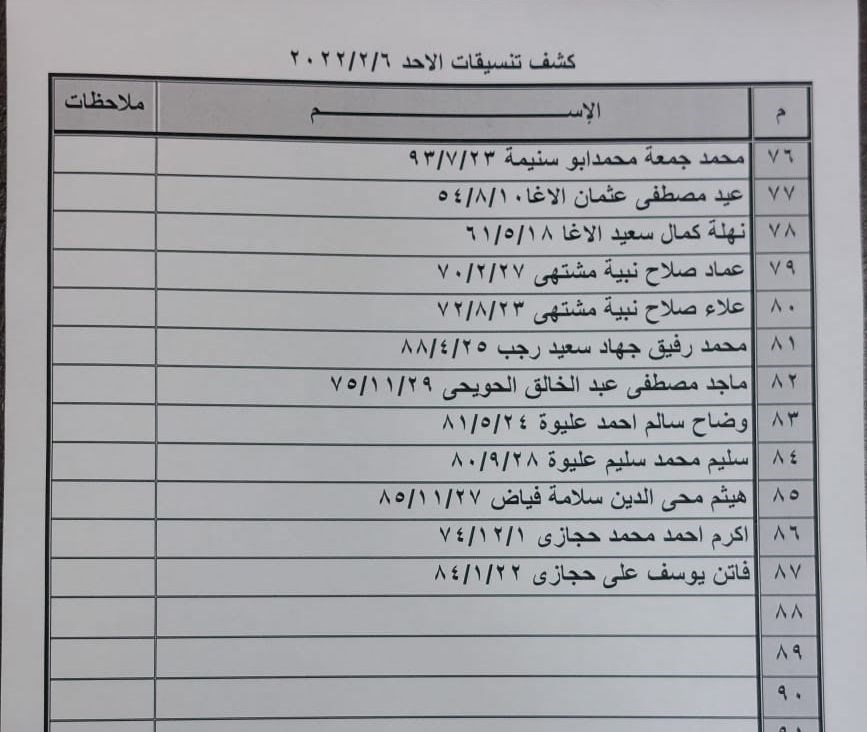 كشف تنسيقات الاحد ٢٠٢٢/٢/٦
م الإســـــــــــم ملاحظات
٧٦ محمد جمعة محمدابو سنيمة ٩٣/٧/٢٣
٧٧ عيد مصطفى عثمان الاغا ٥٤/٨/١٠
٧٨ نهلة كمال سعيد الاغا ٦١/٥/١٨
٧٩ عماد صلاح نبية مشتهى ٧٠/٢/٢٧
٨٠ علاء صلاح نبية مشتهى ٧٢/٨/٢٣
٨١ محمد رفيق جهاد سعيد رجب ٨٨/٤/٢٥
٨٢ ماجد مصطفى عبد الخالق الحويحى ٧٥/١١/٢٩
٨٣ وضاح سالم احمد عليوة ٨١/٥/٢٤
٨٤ سليم محمد سليم عليوة ٨٠/٩/٢٨
٨٥ هيثم محى الدين سلامة فياض ٨٥/١١/٢٧
٨٦ اكرم احمد محمد حجازى ٧٤/١٢/١
٨٧ فاتن يوسف على حجازى ٨٤/١/٢٢
٨٨
٨٩
٩٠